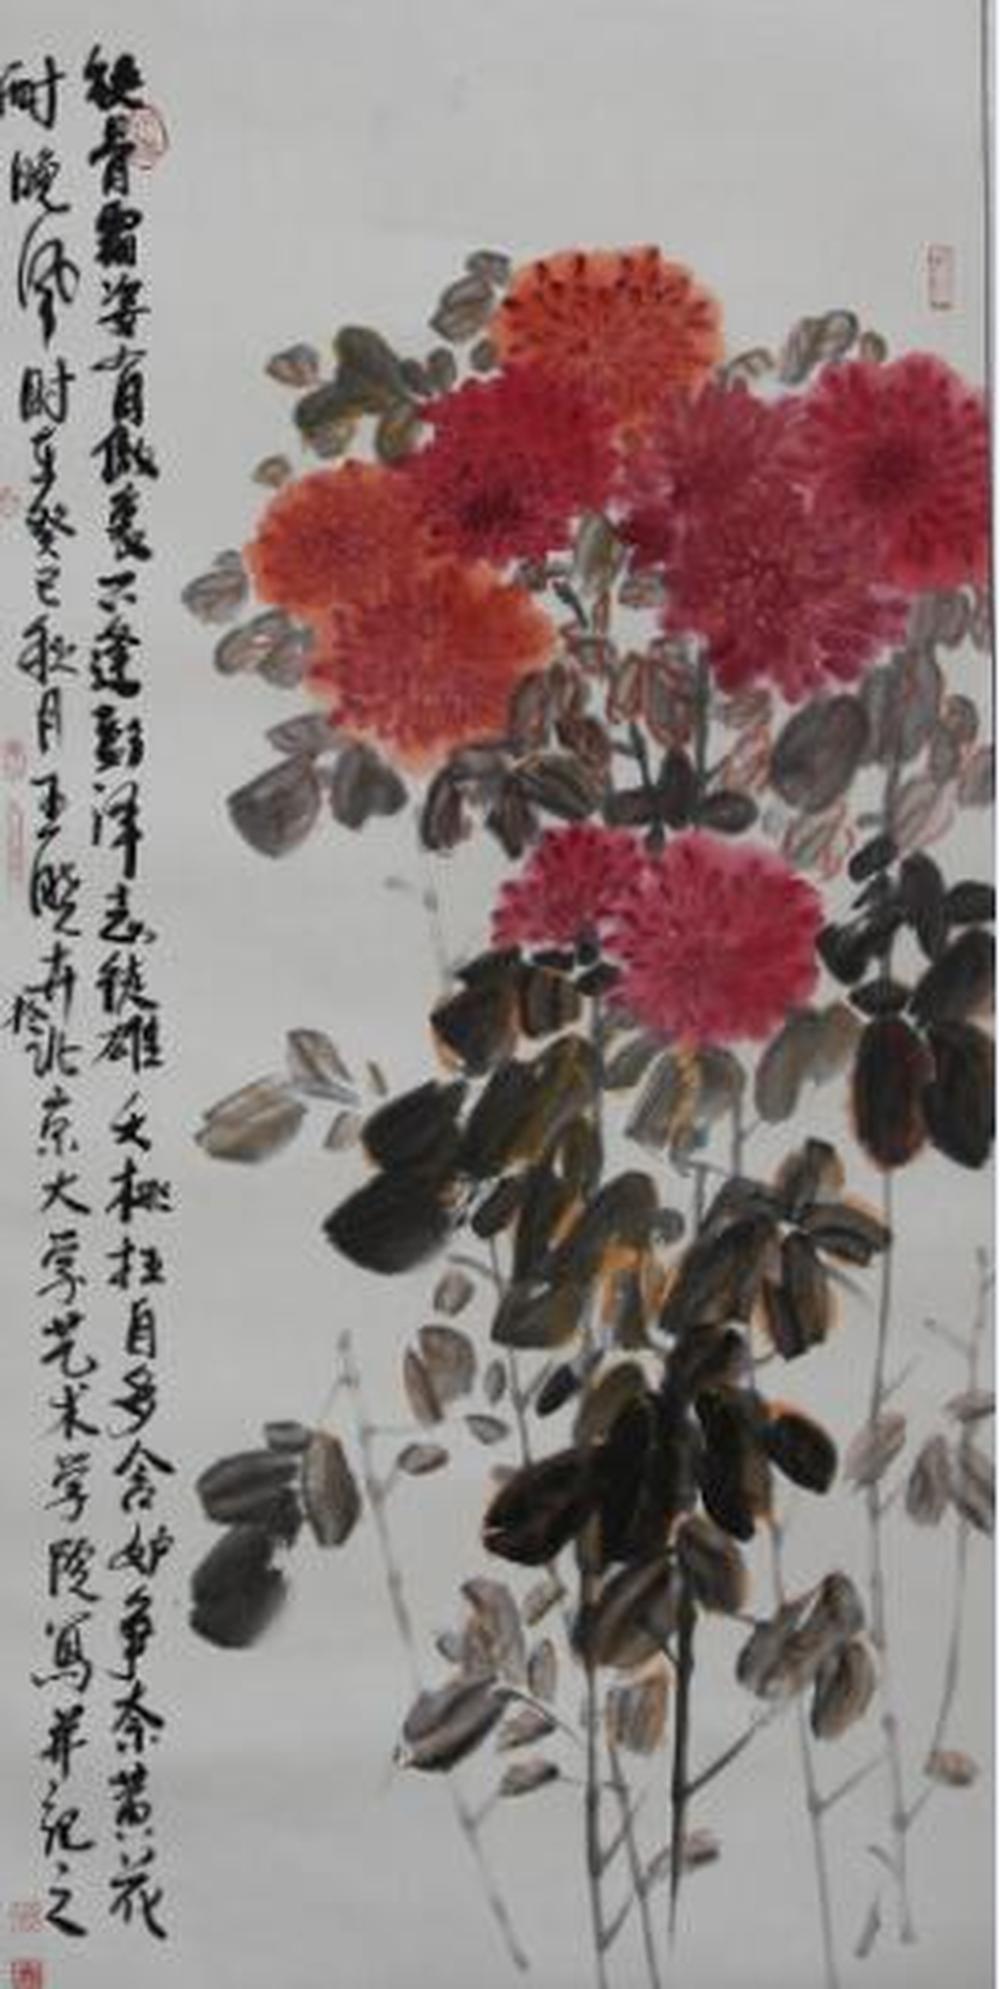 铁骨霜姿有傲衷不逢彭泽志徒雄夭桃枉自多含妒争奈黄花
耐晚风时在癸巳秋月王晓卉於北京大学艺术学院写并记之